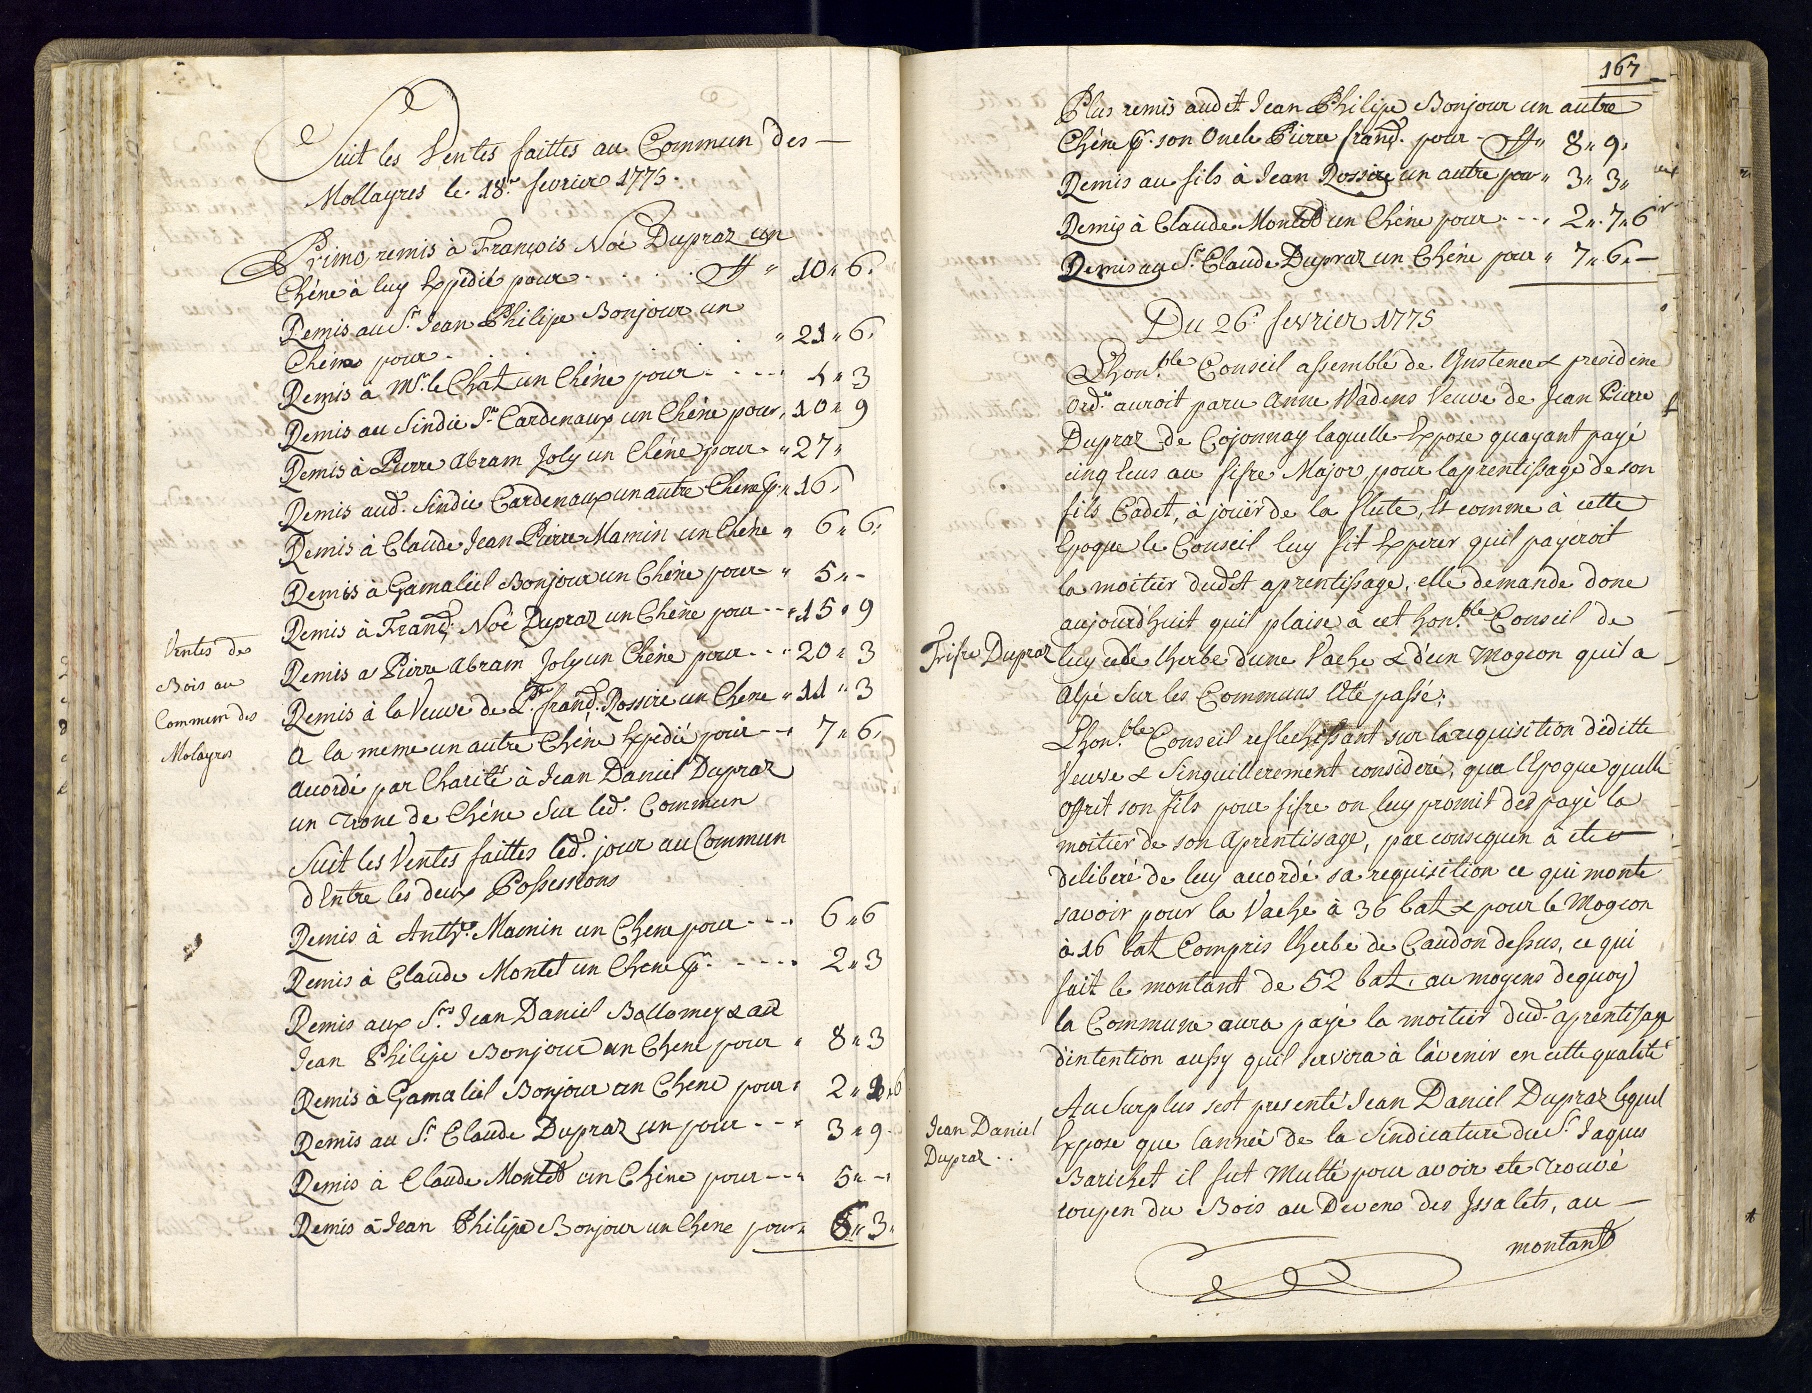 Suit les Ventes faittes au Commun des
Mollayres le 18.e fevrier 1775.
Primo, remis à François Noé Dupraz un
Chéne à luy Expedié pour . . . . ff " 10 " 6 "
Remis au Sr. Jean Philipe Bonjour un
Chéne pour . . . . . " 21 " 6 "
Remis à Mr. le Chat un Chéne pour - - - 4 " 3
Remis au Sindic Jn Cardenaux un Chéne pour " 10 " 9
Remis à Pierre Abram Joly un Chéne pour " 27 "
Remis aud. Sindic Cardenaux un autre Chene p. " 16 "
Remis à Claude Jean Pierre Mamin un Chene " 6 " 6 "
Remis à Gamaliel Bonjour un Chéne pour " 5 " -
Remis à Franç. Noé Dupraz un Chéne pour - - " 15 " 9
Remis a Pierre Abram Joly un Chéne pour - - " 20 " 3
Remis à la Veuve de P. franç. Rossire un Chene " 11 " 3
a la meme un autre Chéne Expedié pour - - 7 " 6 "
Accordé par Charité à Jean Daniel Dupraz
un Tronc de Chéne Sur led. Commun
Ventes de
Bois au
Commun des
Molayres
Suit les Ventes faittes led. jour au Commun
d'Entre les deux Possessions
Remis à Anthe. Mamin un Chene pour - - - 6 " 6
Remis à Claude Montet un Chene p. - - - - 2 " 3
Remis aux Srs. Jean Daniel Bollomey & au
Jean Philipe Bonjour un Chene pour " 8 " 3
Remis à Gamaliel Bonjour un Chene pour " 2 " 6
Remis au Sr. Claude Dupraz un pour - - " 3 " 9
Remis à Claude Montet un Chéne pour - - - 5 " -
Remis à Jean Philipe Bonjour un Chene pour " 6 " 3 "
167
Plus remis audit Jean Philipe Bonjour un autre
Chéne p. son Oncle Pierre franç. pour - ff " 8 " 9 "
Remis au fils à Jean Rossire un autre pour " 3 " 3 "
Remis à Claude Montet un Chéne pour - - - 2 " 7 " 6
Remis au Sr. Claude Dupraz un Chéne pour " 7 " 6 " -
Du 26.e fevrier 1775
L'hon.ble Conseil assemblé de l'Instence & presidence
Ord.e auroit paru Anne Wadens Veuve de Jean Pierre
Dupraz de Cojonnay laquelle Expose quayant payé
cinq Ecus au fifre Major, pour laprentissage de son
fils Cadet, à jouïr de la flute, Et comme à cette
Epoque le Conseil luy fit Esperer quil payeroit
la moitier dudit aprentissage, elle demande donc
aujourdhuit quil plaise à cet hon.ble Conseil de
Frifre Dupraz
luy céde lherbe dune Vache & d'un Mogeon quil a
alpé Sur les Communs l'Eté passé;
L'hon.ble Conseil reflechissant sur la requisition déditte
Veuve & Singuillerement considere, qua l'Epoque quelle
offrit son fils pour fifre on luy promit des payé la
moitier de son aprentissage, par consequen à eté
deliberé de luy accordé sa requisition ce qui monte
savoir pour la Vache à 36 batz & pour le Mogeon
à 16 batz Compris lherbe de Caudon dessus, ce qui
fait le montant de 52 batz. au moyens dequoy
la Commune aura payé la moitier dud. aprentissage
d'intention aussy quil servira à lávenir en cette qualité
Au Surplus sest presenté Jean Daniel Dupraz lequel
Jean Daniel
Dupraz . .
Expose que lannée de la Sindicature du Sr. Jaques
Barichet il fut Multé pour avoir eté Trouvé
coupen du Bois au Devens des Issalets, au
montant